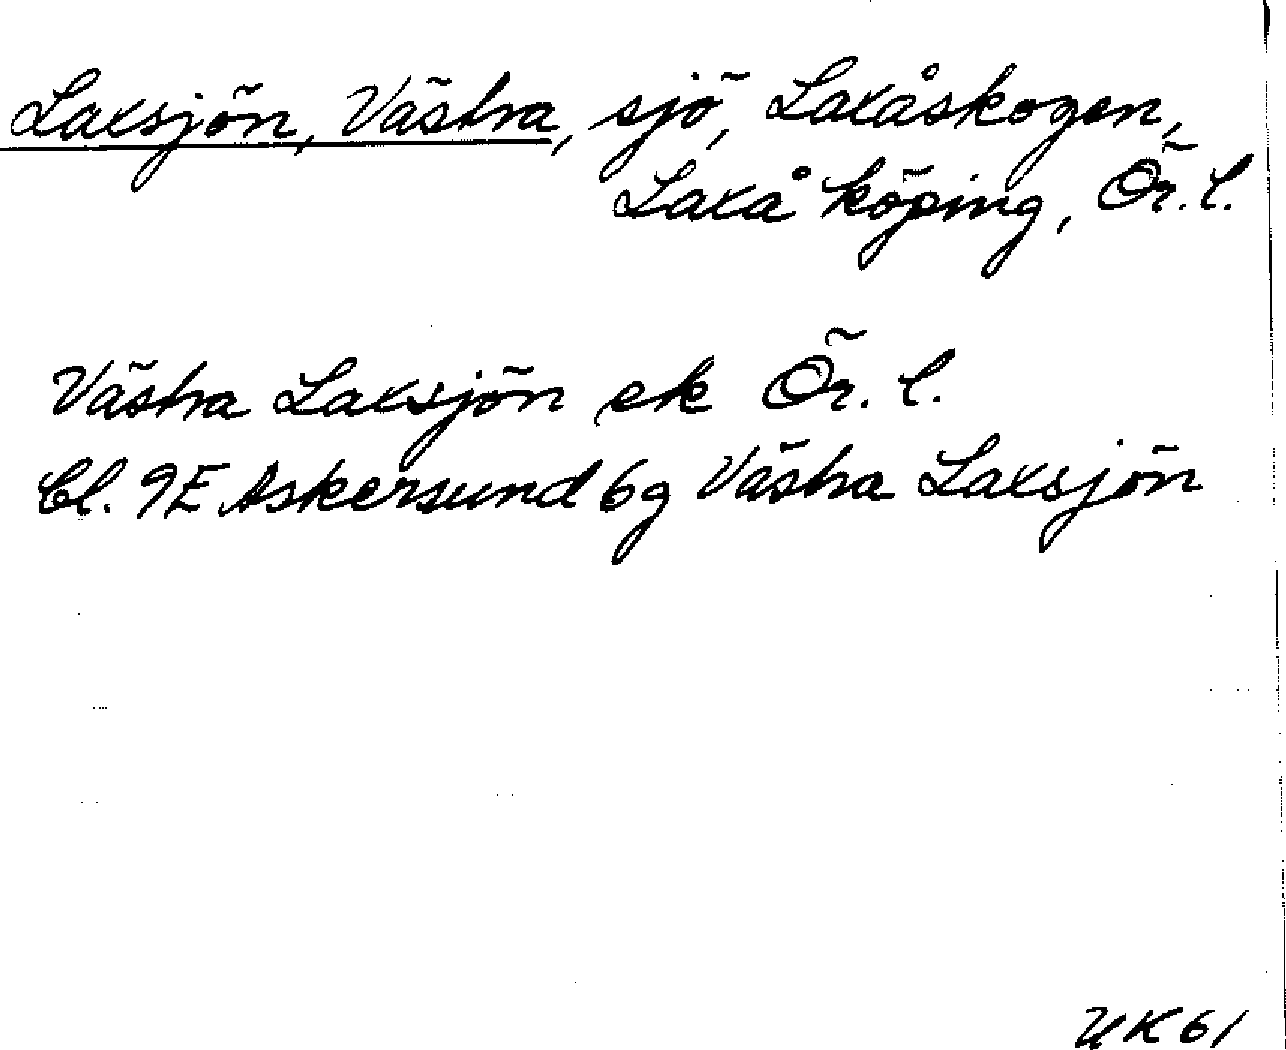 Laxsjön, Västra, sjö, Laxåskogen,
Laxå köping, Ör. l.
Västra Laxsjön ek Ör. l.
Bl. 9E Askersund 6g Västra Laxsjön
UK 61